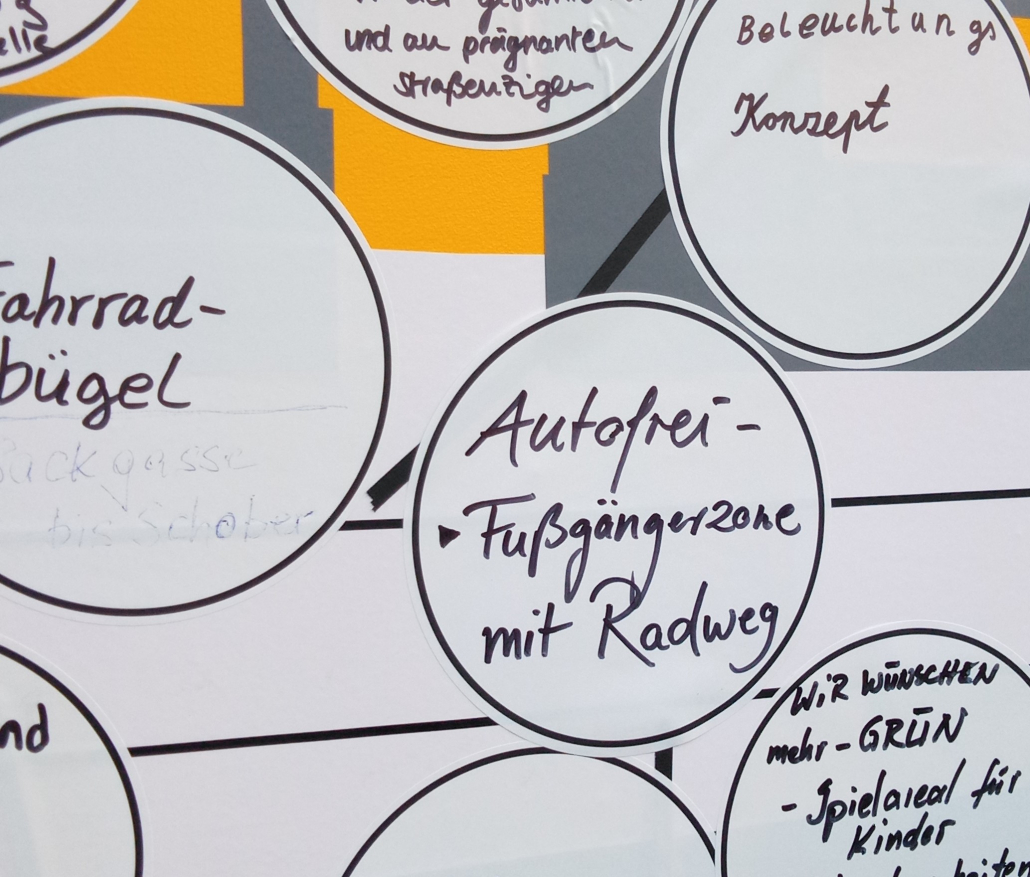 und an prägnanten
Straßenzügen
Beleuchtungs
Konzept
Fahrrad-
bügel
Sackgasse
bis Schober
Autofrei-
▸ Fußgängerzone
mit Radweg
nd
WiR WÜNSCHEN
mehr - GRÜN
- Spielareal für
Kinder